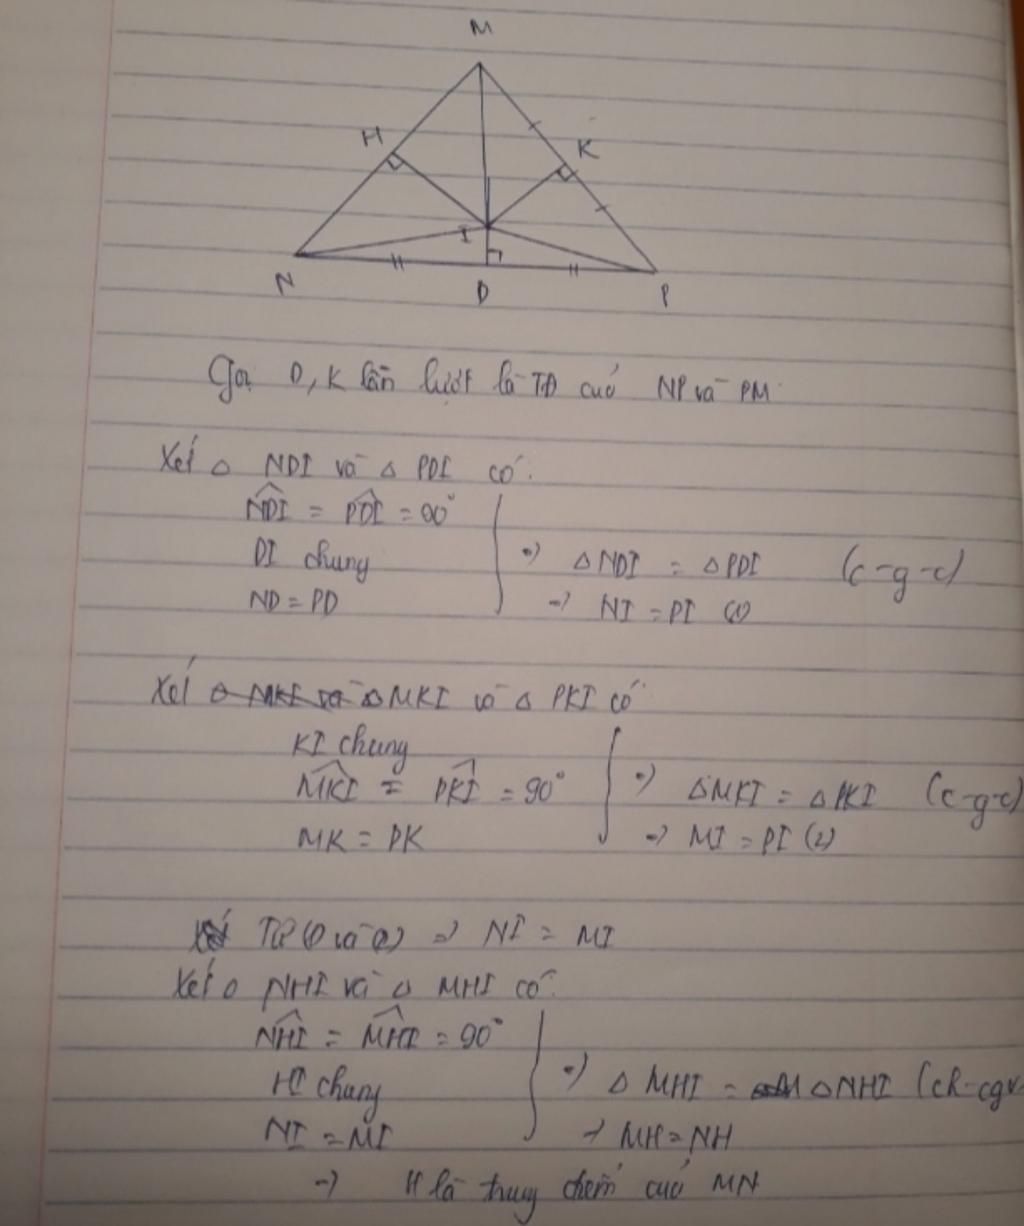 M
H
K
I
N
D
P
Gọi D, K lần lượt là TĐ của NP và PM
Xét △ NDI và △ PDI có:
NDI = PDI = 90°
DI chung
=> △ NDI = △ PDI (c-g-c)
ND = PD
=> NI = PI (1)
Xét △ MKI và △ MKI và △ PKI có
KI chung
MKI = PKI = 90°
=> △MKI = △PKI (c-g-c)
MK = PK
=> MI = PI (2)
Từ (1) và (2) => NI = MI
Xét △ NHI và △ MHI có:
NHI = MHI = 90°
HI chung
=> △ MHI = △NHI (ch-cgv
NI = MI
=> MH = NH
=> H là trung điểm của MN